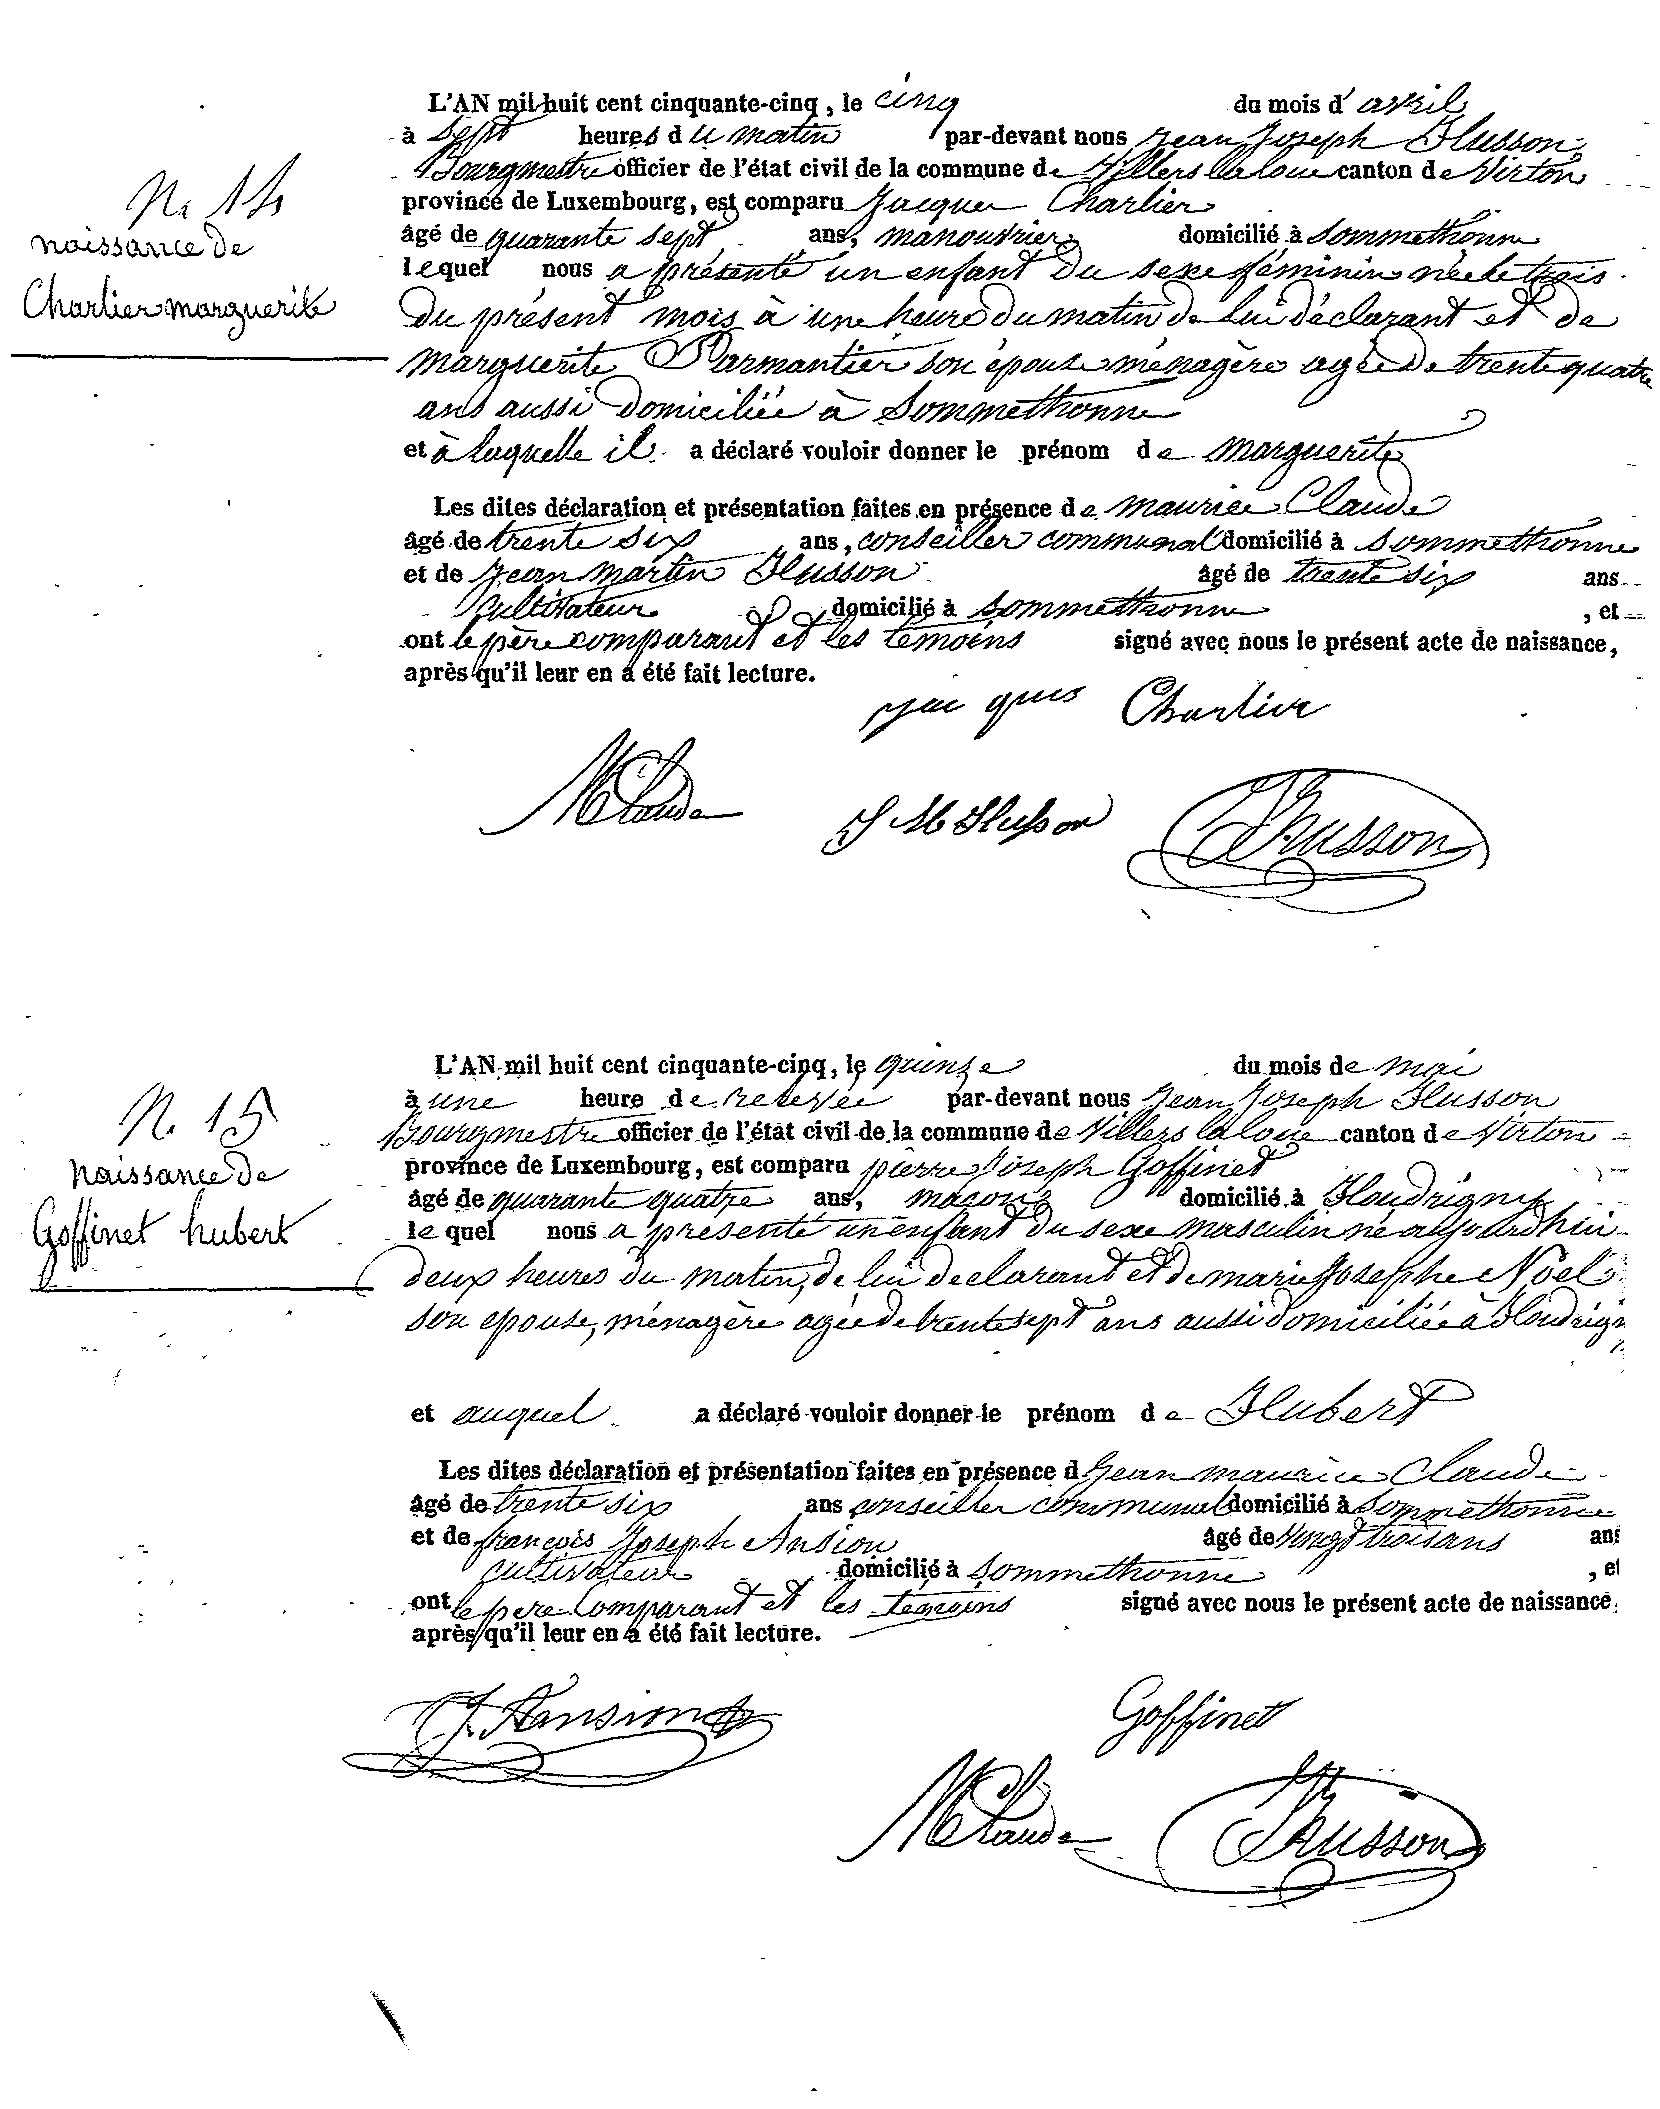 L'AN mil huit cent cinquante-cinq, le cinq du mois d'avril
à sept heures du matin par-devant nous Jean Joseph Husson,
Bourgmestre officier de l'état civil de la commune de Villers la loue canton de Virton
province de Luxembourg, est comparu Jacques Charlier
âgé de quarante sept ans, manouvrier domicilié à Sommethonne
lequel nous a présenté un enfant du sexe féminin née le trois
du présent mois à une heure du matin de lui déclarant et de
marguerite Parmantier son épouse ménagère agée de trente quatre
ans aussi domiciliée à Sommethonne
et à laquelle il a déclaré vouloir donner le prénom de marguerite
Les dites déclaration et présentation faites en présence de maurice Claude
âgé de trente six ans, conseiller communal domicilié à Sommethonne
et de Jean martin Husson âgé de trente six ans
cultivateur domicilié à Sommethonne, et
ont le père comparant et les témoins signé avec nous le présent acte de naissance,
après qu'il leur en a été fait lecture.
N. 14
naissance de
Charlier marguerite
jac ques Charlier
MClaude J M Husson JJHusson
L'AN mil huit cent cinquante-cinq, le quinze du mois de mai
à une heure de relevée par-devant nous Jean Joseph Husson
Bourgmestre officier de l'état civil de la commune de Villers la loue canton de Virton
province de Luxembourg, est comparu pierre Joseph Goffinet
âgé de quarante quatre ans, maçon domicilié à Houdrigny
lequel nous a présenté un enfant du sexe masculin né aujourd'hui
deux heures du matin, de lui declarant et de marie Josephe Noël
son epouse, ménagère agée de trente sept ans aussi domiciliée à Houdrign
et auquel a déclaré vouloir donner le prénom de Hubert
Les dites déclaration et présentation faites en présence d Jean maurice Claude
âgé de trente six ans conseiller communal domicilié à Sommethonne
et de françois Joseph Ansion âgé de vingt trois ans ans
cultivateur domicilié à Sommethonne, et
ont le père comparant et les témoins signé avec nous le présent acte de naissance,
après qu'il leur en a été fait lecture.
N. 15
naissance de
Goffinet hubert
Goffinet
MClaude JJHusson